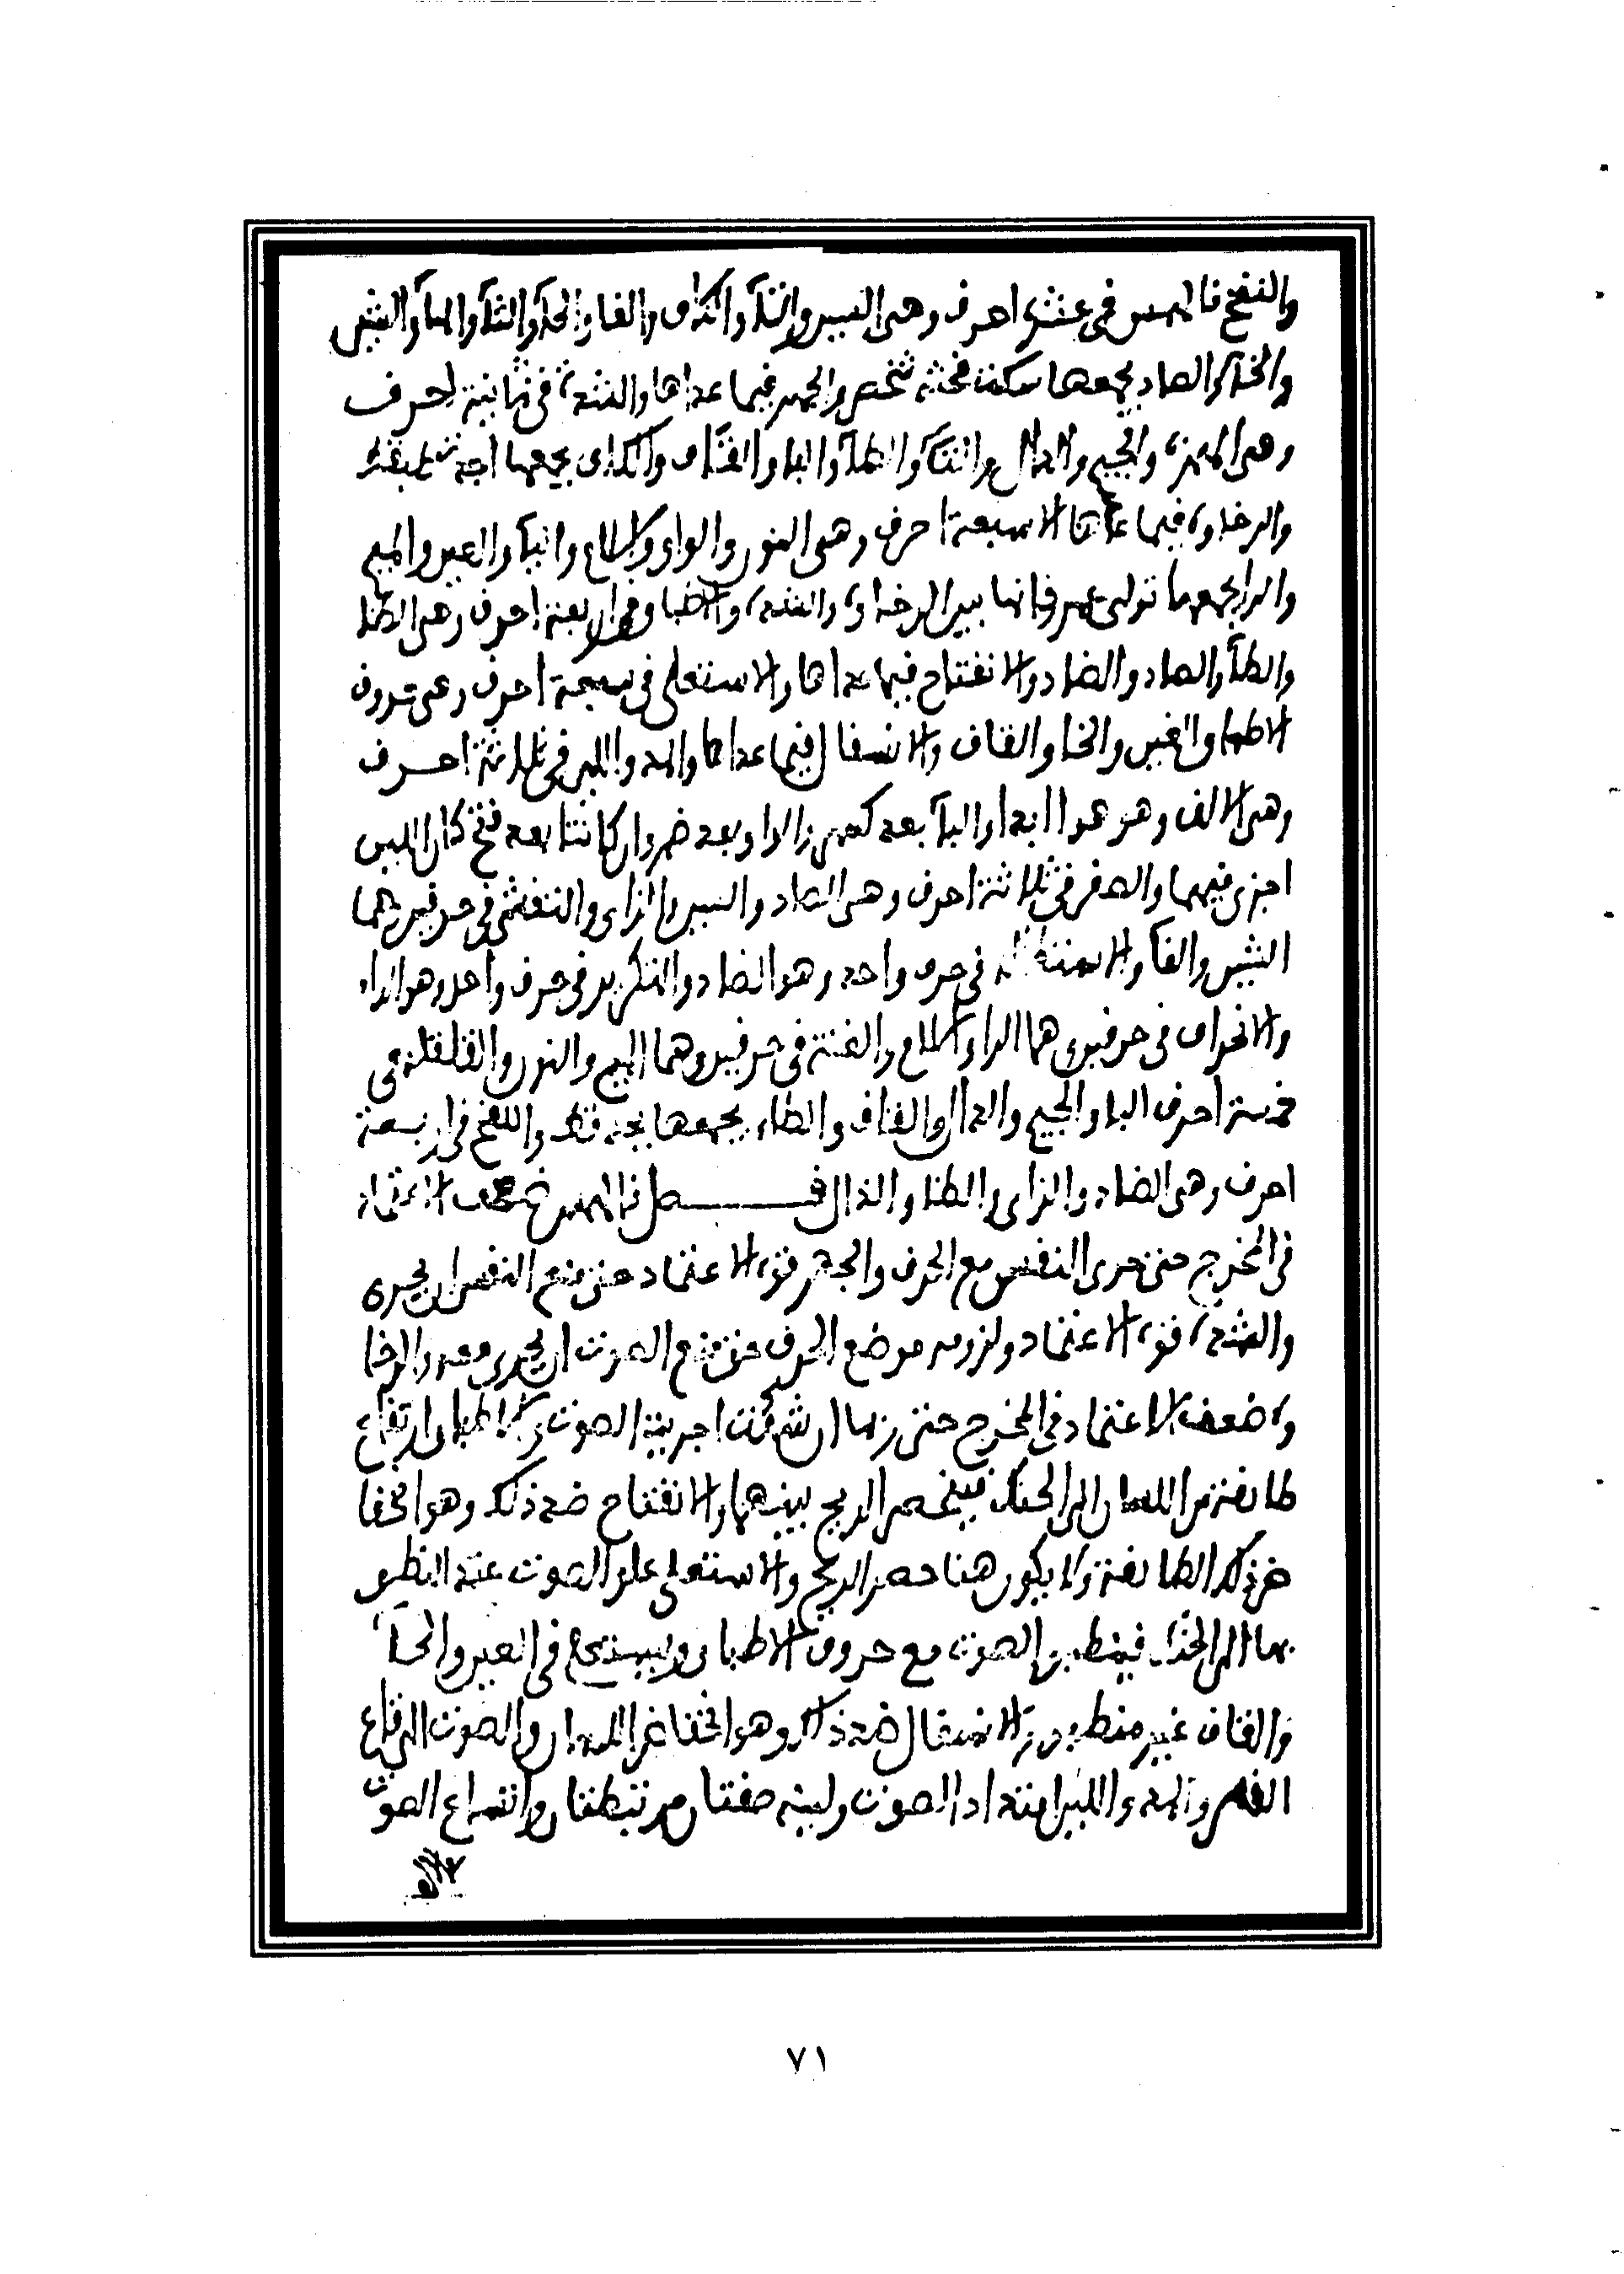 والنفخ فالهمس في عشرة احرف وهي السين والتآ والكاف والفا والحآ والثآ والهآ والشين
والخآ والصاد يجمعها سكت فحثه شخص والجهر فيما عداها والشدة في ثمانية احرف
وهي الهمزة والجيم والدال والتآ والطآ والبا والقاف والكاف يجمعها اجدت طبقك
والرخاوة فيما عداها الا سبعة احرف وهي النون والواو واللام واليآ والعين والميم
والرا يجمعها نولي عمر فانها بين الرخاوة والشدة والاطباق في اربعة احرف وهي الظا
والطآ والصاد والضاد والانفتاح فيما عداها والاستعلا في سبعة احرف وهي حروف
الاطباق والغين والخا والقاف والانسفال فيما عداها والمد واللين في ثلاثة احرف
وهي الالف وهو هوا ابدا واليآ بعد كسر والواو بعد ضم وان كانتا بعد فتح كان اللين
اجزى فيهما والصفر في ثلاثة احرف وهي الصاد والسين والزاي والتفشي في حرفين هما
الشين والفآ والاستطالة في حرف واحد وهو الضاد والتكرير في حرف واحد وهو الراء
والانحراف في حرفين هما الرا واللام والغنة في حرفين وهما الميم والنون والقلقلة في
خمسة احرف البا والجيم والدال والقاف والطاء يجمعها بجد قط والنفخ في اربعة
احرف وهي الضاد والزاي والظا والذال فصل فالهمس ضعف الاعتماد
في المخرج حتى جرى النفس مع الحرف والجهر قوة الاعتماد حتى منع النفس ان يجري
والشدة قوة الاعتماد ولزومه موضع الحرف حتى منع الصوت ان يجري معه والرخا
وة ضعف الاعتماد في المخرج حتى ربما ان شئت اجريت الصوت والاطباق ارتفاع
طائفة من اللسان الى الحنك فينحصر الريح بينهما والانفتاح ضد ذلك وهو انخفا
ض ذلك الطائفة ولا يكون هنا حصر الريح والاستعلا علو الصوت عند النطق
بها الى الحنك فينطبق الصوت مع حروف الاطباق ويستعلي في الغين والخآ
والقاف غير منطبق والانسفال ضد ذلك وهو انخفاض اللسان والصوت الى قاع
الفم والمد واللين امتداد الصوت ولينه صفتان مرتبطتان واتساع الصوت
٧١